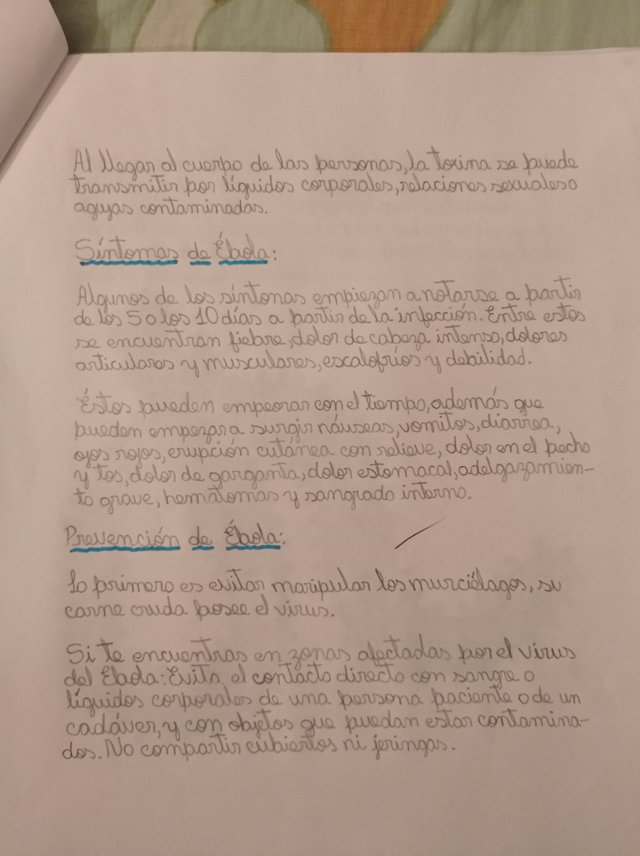 Al llegar al cuerpo de las personas, la toxina se puede
transmitir por líquidos corporales, relaciones sexuales o
agujas contaminadas.
Síntomas de Ébola:
Algunos de los síntomas empiezan a notarse a partir
de los 5 o los 10 días a partir de la infección. Entre estos
se encuentran fiebre, dolor de cabeza intenso, dolores
articulares y musculares, escalofríos y debilidad.
Éstos pueden empeorar con el tiempo, además que
pueden empezar a surgir náuseas, vomitos, diarrea,
ojos rojos, erupción cutánea con relieve, dolor en el pecho
y tos, dolor de garganta, dolor estomacal, adelgazamien-
to grave, hematomas y sangrado interno.
Prevención de Ébola:
Lo primero es evitar manipular los murciélagos, su
carne cruda posee el virus.
Si te encuentras en zonas afectadas por el virus
del Ebola: Evita el contacto directo con sangre o
líquidos corporales de una persona paciente o de un
cadáver, y con objetos que puedan estar contamina-
dos. No compartir cubiertos ni jeringas.